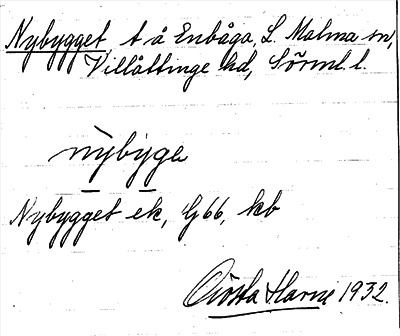 Nybygget, t å Enbåga, L. Malma sn,
Villåttinge hd, Sörml. l.
nỳbỳge
Nybygget ek, G66, kb
Gösta Harne 1932.